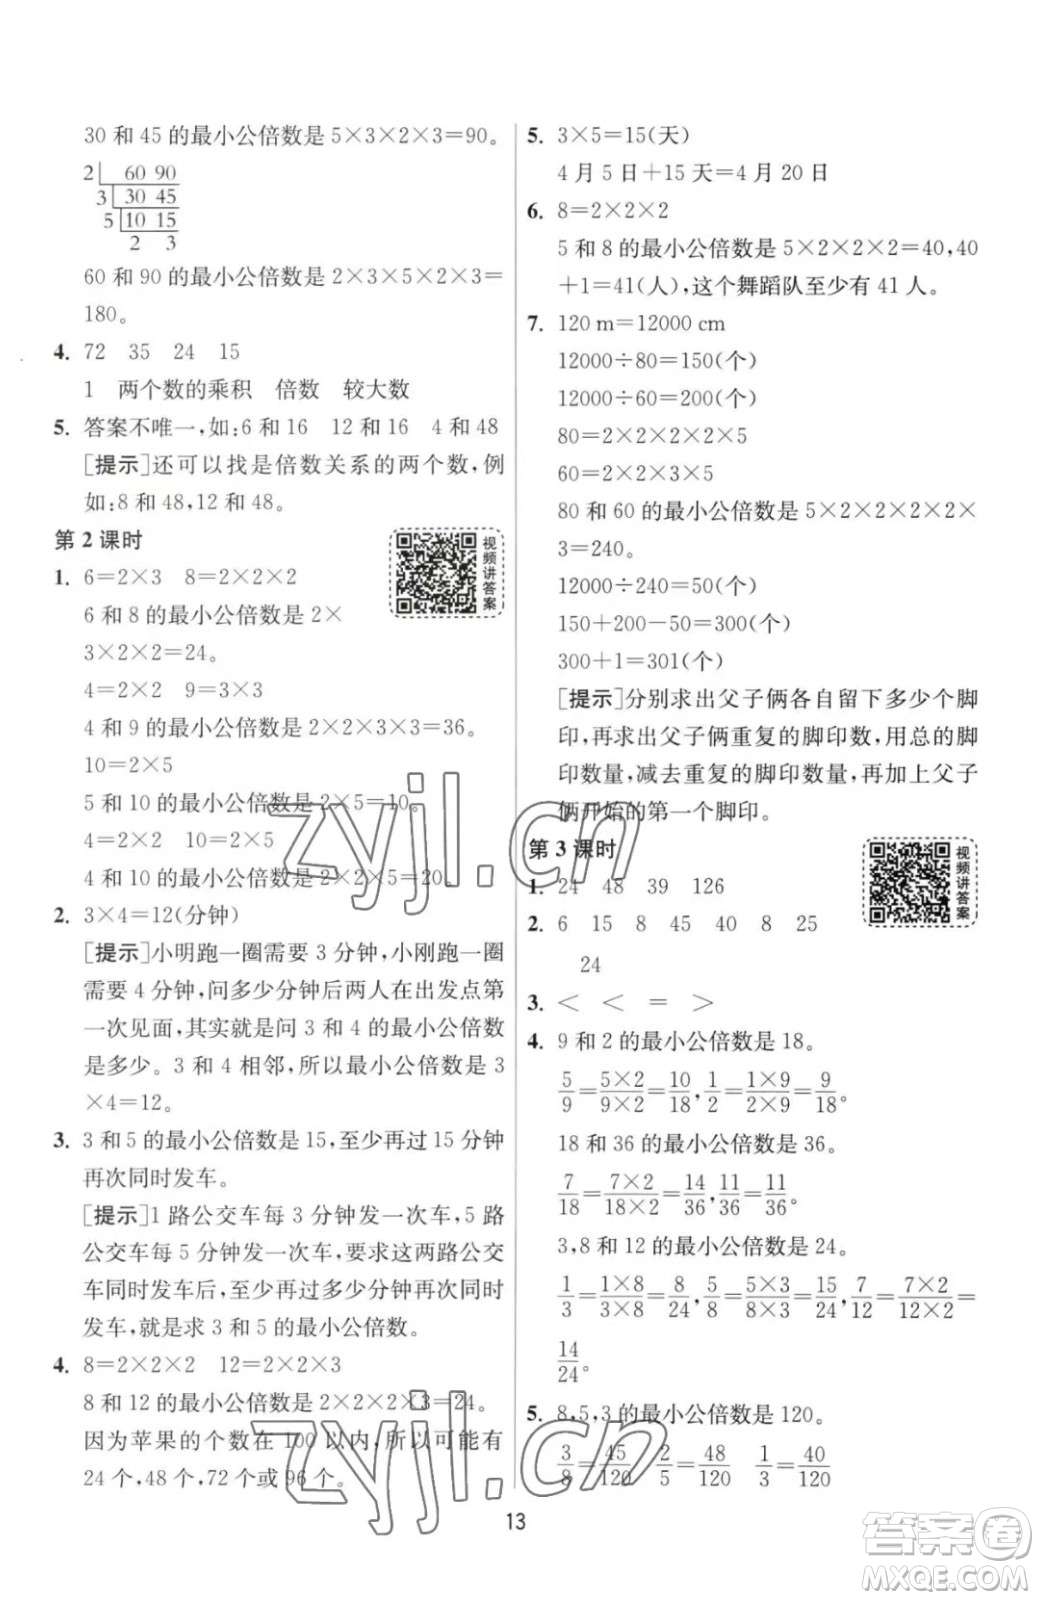 30 和 45 的最小公倍数是 5×3×2×3=90。
2 60 90
3 30 45
5 10 15
2 3
60 和 90 的最小公倍数是 2×3×5×2×3=
180。
4. 72 35 24 15
1 两个数的乘积 倍数 较大数
5. 答案不唯一,如:6 和 16 12 和 16 4 和 48
[提示]还可以找是倍数关系的两个数,例
如:8 和 48,12 和 48。
第 2 课时
视频讲答案
1. 6=2×3 8=2×2×2
6 和 8 的最小公倍数是 2×
3×2×2=24。
4=2×2 9=3×3
4 和 9 的最小公倍数是 2×2×3×3=36。
10=2×5
5 和 10 的最小公倍数是 2×5=10。
4=2×2 10=2×5
4 和 10 的最小公倍数是 2×2×5=20。
2. 3×4=12(分钟)
[提示]小明跑一圈需要 3 分钟,小刚跑一圈
需要 4 分钟,问多少分钟后两人在出发点第
一次见面,其实就是问 3 和 4 的最小公倍数
是多少。3 和 4 相邻,所以最小公倍数是 3
×4=12。
3. 3 和 5 的最小公倍数是 15,至少再过 15 分钟
再次同时发车。
[提示]1 路公交车每 3 分钟发一次车,5 路
公交车每 5 分钟发一次车,要求这两路公交
车同时发车后,至少再过多少分钟再次同时
发车,就是求 3 和 5 的最小公倍数。
4. 8=2×2×2 12=2×2×3
8 和 12 的最小公倍数是 2×2×2×3=24。
因为苹果的个数在 100 以内,所以可能有
24 个,48 个,72 个或 96 个。
5. 3×5=15(天)
4 月 5 日+15 天=4 月 20 日
6. 8=2×2×2
5 和 8 的最小公倍数是 5×2×2×2=40,40
+1=41(人),这个舞蹈队至少有 41 人。
7. 120 m=12000 cm
12000÷80=150(个)
12000÷60=200(个)
80=2×2×2×2×5
60=2×2×3×5
80 和 60 的最小公倍数是 5×2×2×2×2×
3=240。
12000÷240=50(个)
150+200-50=300(个)
300+1=301(个)
[提示]分别求出父子俩各自留下多少个脚
印,再求出父子俩重复的脚印数,用总的脚
印数量,减去重复的脚印数量,再加上父子
俩开始的第一个脚印。
第 3 课时
视频讲答案
1. 24 48 39 126
2. 6 15 8 45 40 8 25
24
3. < < = >
4. 9 和 2 的最小公倍数是 18。
5/9=5×2/9×2=10/18,1/2=1×9/2×9=9/18。
18 和 36 的最小公倍数是 36。
7/18=7×2/18×2=14/36,11/36=11/36。
3,8 和 12 的最小公倍数是 24。
1/3=1×8/3×8=8/24,5/8=5×3/8×3=15/24,7/12=7×2/12×2=
14/24。
5. 8,5,3 的最小公倍数是 120。
3/8=45/120 2/5=48/120 1/3=40/120
13
zyjl.cn
zyjl.cn
答案卷
MXQE.COM